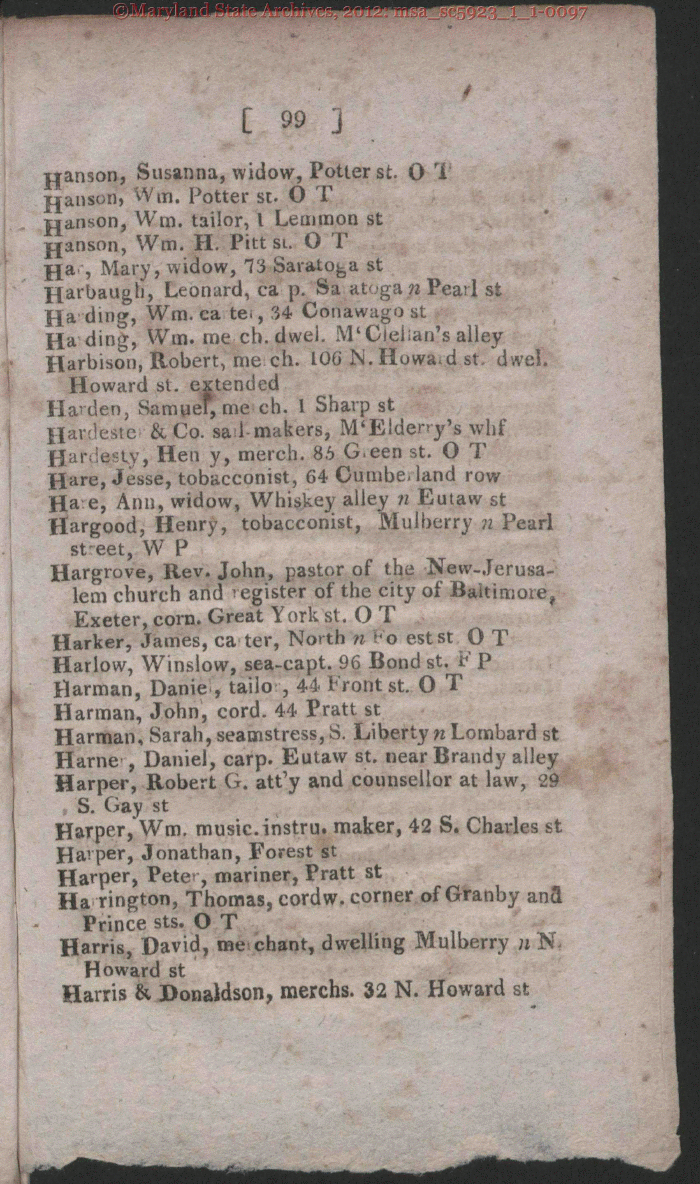 ©Maryland State Archives, 2012: msa_sc5923_1_1-0097
[ 99 ]
Hanson, Susanna, widow, Potter st. O T
Hanson, Wm. Potter st. O T
Hanson, Wm. tailor, 1 Lemmon st
Hanson, Wm. H. Pitt st. O T
Mary, widow, 73 Saratoga st
Harbaugh, Leonard, carp. Saratoga n Pearl st
Harding, Wm. carter, 34 Conawago st
Harding, Wm. merch. dwel. M‘Clellan's alley
Harbison, Robert, merch. 106 N. Howard st. dwel.
Howard st. extended
Harden, Samuel, merch. 1 Sharp st
Hardester & Co. sail-makers, M‘Elderry's whf
Hardesty, Henry, merch. 85 Green st. O T
Hare, Jesse, tobacconist, 64 Cumberland row
Hare, Ann, widow, Whiskey alley n Eutaw st
Hargood, Henry, tobacconist, Mulberry n Pearl
street, W P
Hargrove, Rev. John, pastor of the New-Jerusa-
lem church and register of the city of Baltimore,
Exeter, corn. Great York st. O T
Harker, James, carter, North n Forest st. O T
Harlow, Winslow, sea-capt. 96 Bond st. F P
Harman, Daniel, tailor, 44 Front st. O T
Harman, John, cord. 44 Pratt st
Harman, Sarah, seamstress, S. Liberty n Lombard st
Harner, Daniel, carp. Eutaw st. near Brandy alley
Harper, Robert G. att'y and counsellor at law, 29
S. Gay st
Harper, Wm. music. instru. maker, 42 S. Charles st
Harper, Jonathan, Forest st
Harper, Peter, mariner, Pratt st
Harrington, Thomas, cordw. corner of Granby and
Prince sts. O T
Harris, David, merchant, dwelling Mulberry n N.
Howard st
Harris & Donaldson, merchs. 32 N. Howard st